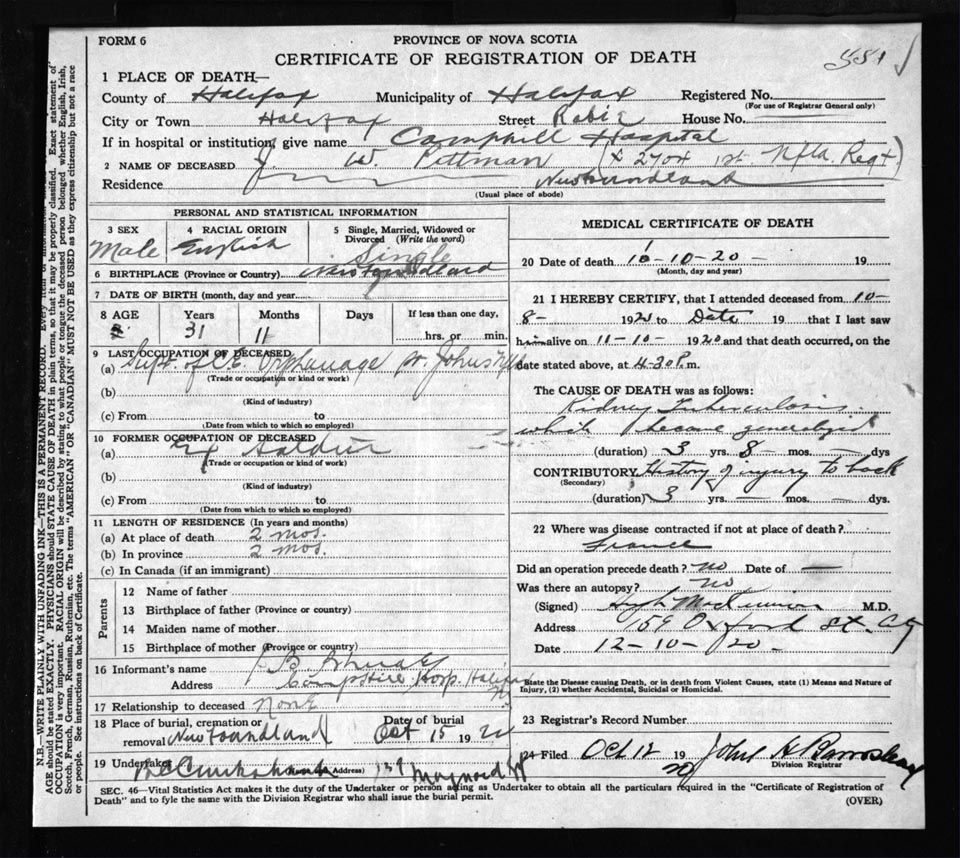 FORM 6
PROVINCE OF NOVA SCOTIA
CERTIFICATE OF REGISTRATION OF DEATH
1 PLACE OF DEATH—
County of Halifax Municipality of Halifax Registered No.
(For use of Registrar General only)
City or Town Halifax Street Robie House No. —
If in hospital or institution, give name Camphill Hospital
2 NAME OF DECEASED J. W. Pittman (# 2704 1st Nfld. Regt)
Residence Newfoundland
(Usual place of abode)
PERSONAL AND STATISTICAL INFORMATION
3 SEX Male
4 RACIAL ORIGIN English
5 Single, Married, Widowed or Divorced (Write the word) Single
6 BIRTHPLACE (Province or Country) Newfoundland
7 DATE OF BIRTH (month, day and year)
8 AGE Years 31 Months 11 Days If less than one day, hrs. or min.
9 LAST OCCUPATION OF DECEASED
(a) Supt. of C.E. Orphanage St. Johns Nfld
(Trade or occupation or kind of work)
(b)
(Kind of industry)
(c) From to
(Date from which to which so employed)
10 FORMER OCCUPATION OF DECEASED
(a) Ex Soldier
(Trade or occupation or kind of work)
(b)
(Kind of industry)
(c) From to
(Date from which to which so employed)
11 LENGTH OF RESIDENCE (In years and months)
(a) At place of death 2 mos.
(b) In province 2 mos.
(c) In Canada (if an immigrant)
Parents
12 Name of father
13 Birthplace of father (Province or country)
14 Maiden name of mother
15 Birthplace of mother (Province or country)
16 Informant's name B.
Address Camphill Hosp. Halifax
17 Relationship to deceased None
18 Place of burial, cremation or removal Newfoundland Date of burial Oct 15 1920
19 Undertaker (Address) 139 Maynard St
MEDICAL CERTIFICATE OF DEATH
20 Date of death 10-10-20- 19
(Month, day and year)
21 I HEREBY CERTIFY, that I attended deceased from 10-
8- 1920 to Date 19 that I last saw
him alive on 11-10- 1920 and that death occurred, on the
date stated above, at 4-30 P. m.
The CAUSE OF DEATH was as follows:
Kidney Tuberculosis
which became generalized
(duration) 3 yrs. 8 - mos. — dys
CONTRIBUTORY History of injury to back
(Secondary)
(duration) 3 yrs. — mos. — dys.
22 Where was disease contracted if not at place of death?
France
Did an operation precede death? no Date of —
Was there an autopsy? no
(Signed) M.D.
Address 159 Oxford St. City
Date 12-10-20-
State the Disease causing Death, or in death from Violent Causes, state (1) Means and Nature of Injury, (2) whether Accidental, Suicidal or Homicidal.
23 Registrar's Record Number
24 Filed Oct 12 1920 John
Division Registrar
SEC. 46—Vital Statistics Act makes it the duty of the Undertaker or person acting as Undertaker to obtain all the particulars required in the "Certificate of Registration of
Death" and to fyle the same with the Division Registrar who shall issue the burial permit. (OVER)
N.B.—WRITE PLAINLY WITH UNFADING INK—THIS IS A PERMANENT RECORD. Every item of information
AGE should be stated EXACTLY. PHYSICIANS should STATE CAUSE OF DEATH in plain terms, so that it may be properly classified. Exact statement of
OCCUPATION is very important. RACIAL ORIGIN will be described by stating to what people or tongue the deceased person belonged whether English, Irish,
Scotch, French, German, Russian, Ruthenian, etc. The terms "AMERICAN" OR "CANADIAN" MUST NOT BE USED as they express citizenship but not a race
or people. See instructions on back of Certificate.